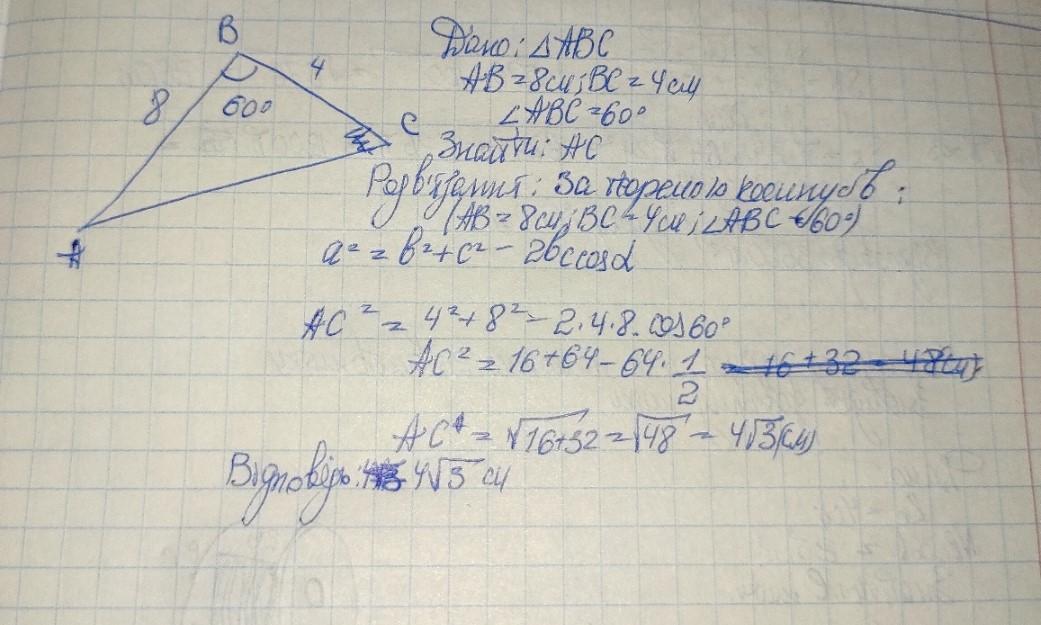 B
4
8
60°
C
A
Дано: △ABC
AB = 8см; BC = 4см
∠ABC = 60°
Знайти: AC
Розв'язання: За теоремою косинусів:
(AB = 8см; BC = 4см; ∠ABC = 60°)
a² = b² + c² - 2bc cosα
AC² = 4² + 8² - 2·4·8·cos60°
AC² = 16 + 64 - 64 · 1/2 = 16 + 32 = 48(см)
AC = √16+32 = √48 = 4√3(см)
Відповідь: 4√3 см